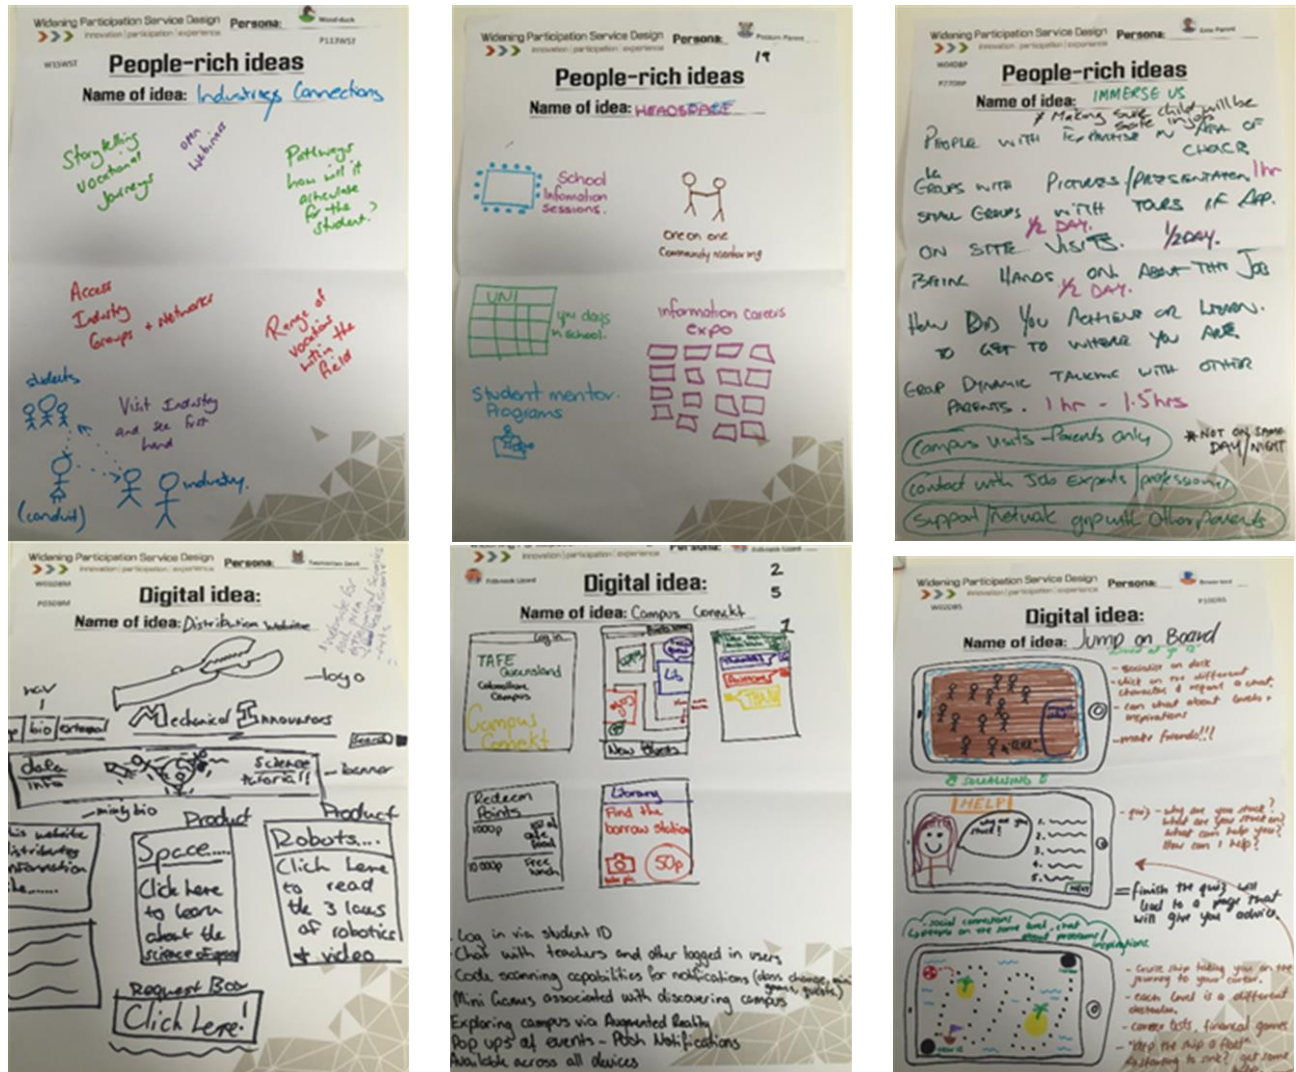 Widening Participation Service Design
innovation | participation | experience
Persona:
Wood-duck
W15WST
P113WST
People-rich ideas
Name of idea: Industry Connections
Storytelling
vocational
Journeys
open
webinars
Pathways
how will it
articulate
for the
student?
Access
Industry
Groups + Networks
Range of
vocations
within the
field
students
Visit Industry
and see first
hand
(conduit)
industry.
Widening Participation Service Design
innovation | participation | experience
Persona:
Possum Parent
19
People-rich ideas
Name of idea: HEADSPACE
School
Information
Sessions.
One on one
Community mentoring
UNI
days
in school.
Information careers
expo
Student mentor
Programs
Widening Participation Service Design
innovation | participation | experience
Persona:
Emu Parent
People-rich ideas
Name of idea: IMMERSE US
* Making sure child will be
safe in job
PEOPLE WITH EXPERTISE IN AREA OF
CHOICE
GROUPS WITH PICTURES/PRESENTATION 1hr
SMALL GROUPS WITH TOURS OF APP.
1/2 DAY.
ON SITE VISITS. 1/2 DAY.
BEING HANDS ON ABOUT THAT JOB
1/2 DAY.
HOW DID YOU ACHIEVE OR LEARN.
TO GET TO WHERE YOU ARE
GROUP DYNAMIC TALKING WITH OTHER
PARENTS. 1 hr - 1.5hrs
Campus visits - Parents only
* NOT ON SAME
DAY/NIGHT
contact with Job Experts/professional
support/network grp with Other Parents
Widening Participation Service Design
innovation | participation | experience
Persona:
Tasmanian Devil
Digital idea:
Name of idea: Distribution website
logo
nav
bio
external
Mechanical Innovators
Search
data
info
Science
tutorial!!
banner
mini bio
Product
Product
his website
distributes
information
Space....
Click here
to learn
about the
science of space
Robots...
Click here
to read
the 3 laws
of robotics
+ video
Request Box
Click Here!
Widening Participation Service Design
innovation | participation | experience
Persona:
Frillneck Lizard
Digital idea:
2
5
Name of idea: Campus Connekt
1
Log in
TAFE
Queensland
Campus
Campus
Connekt
Lib
New Events
Redeem
Points
1000p
10 000p
Free
lunch
Library
Find the
borrow station
50p
Log in via student ID
Chat with teachers and other logged in users
Code scanning capabilities for notifications (class change, mini
games, quests)
Mini Games associated with discovering campus
Exploring campus via Augmented Reality
Pop ups of events - Push Notifications
Available across all devices
Widening Participation Service Design
innovation | participation | experience
Persona:
W02DBS
P10DBS
Digital idea:
Name of idea: Jump on Board
- socialise on deck
- click on the different
character & request a chat.
- can chat about goals +
inspirations
- make friends!!!
SOCIALISING
HELP
why are you
stuck?
1.
2.
3.
4.
5.
NEXT
quiz - why are you stuck?
What are you stuck on?
What can help you?
How can I help?
= finish the quiz will
lead to a page that
will give you advice.
social connections
people on the same level, chat
about problems/
inspirations
- Cruise ship taking you on the
journey to your career.
- each level is a different
- career tests, financial games
- "keep the ship a float"
starting to sink? get some